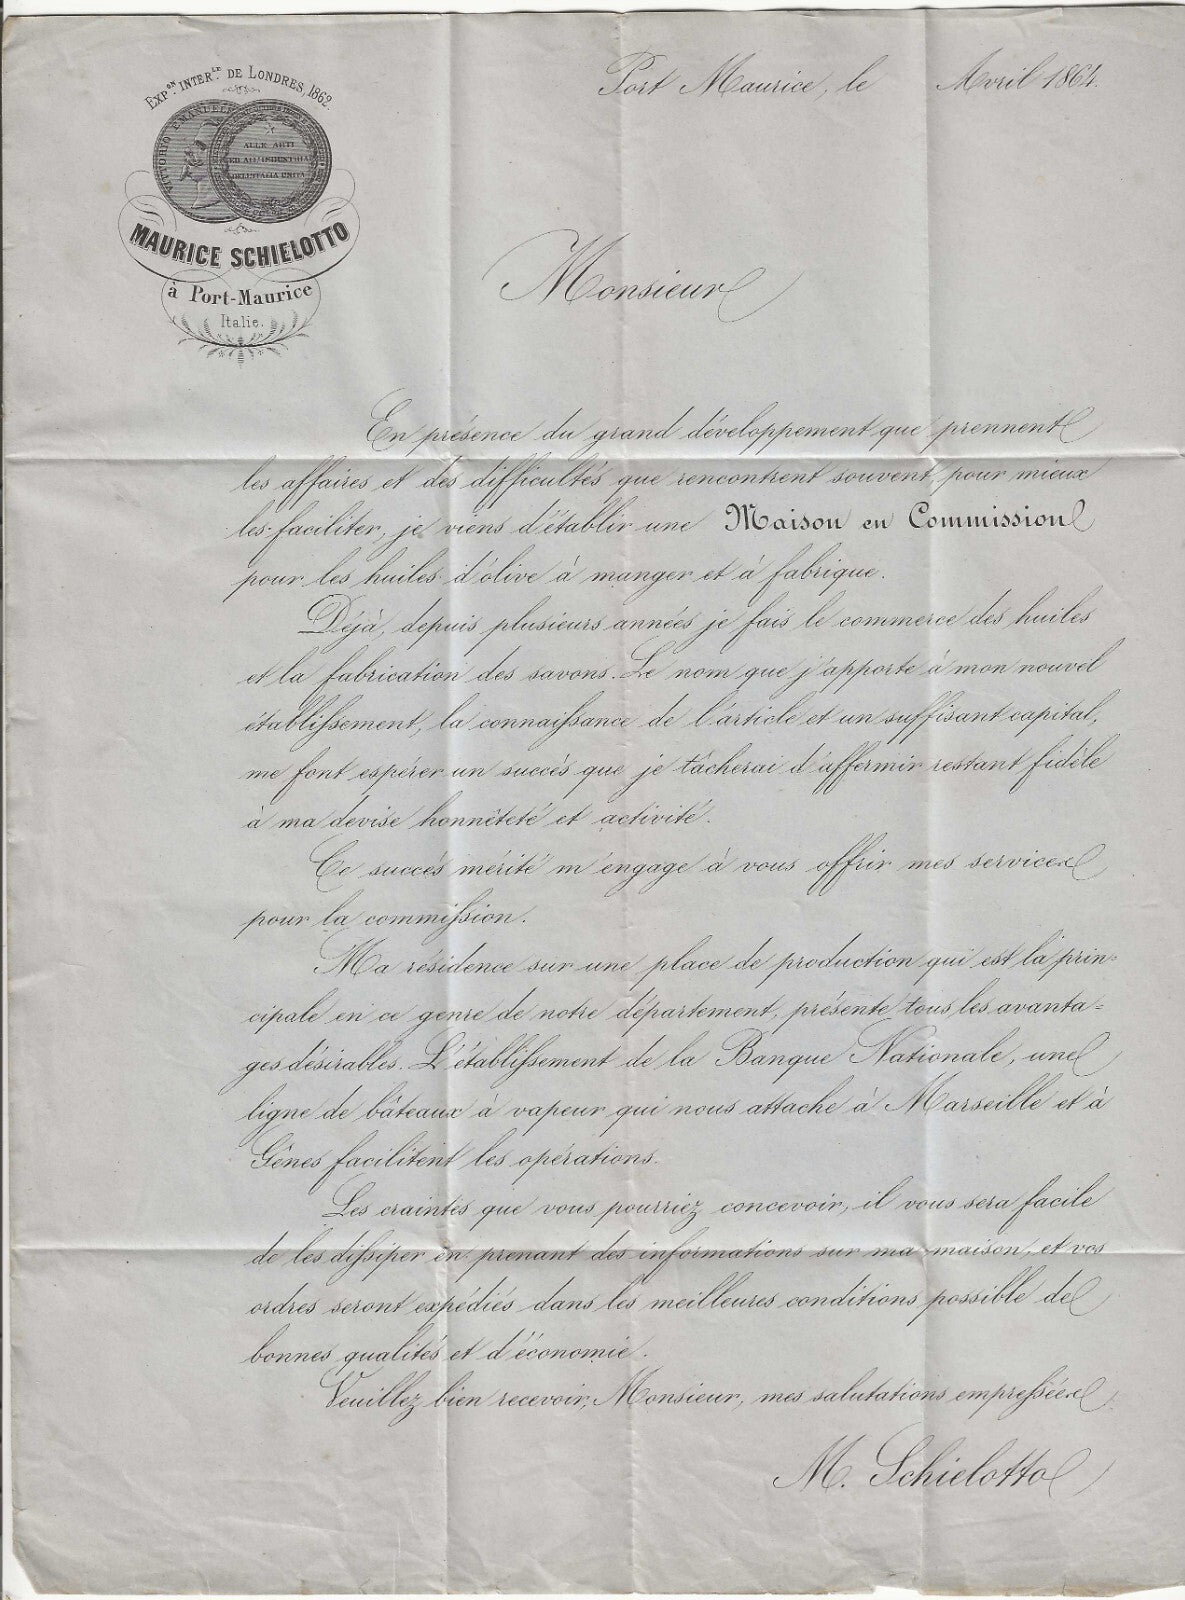 EXP.ON INTER.LE DE LONDRES, 1862.
VITTORIO EMANUELE
ALLE ARTI
ED ALL'INDUSTRIA
DELL'ITALIA UNITA
MAURICE SCHIELOTTO
à Port-Maurice
Italie.
Port Maurice, le Avril 1864.
Monsieur
En présence du grand développement que prennent
les affaires et des difficultés que rencontrent souvent, pour mieux
les faciliter, je viens d'établir une Maison en Commission
pour les huiles d'olive à manger et à fabrique.
Déjà, depuis plusieurs années je fais le commerce des huiles
et la fabrication des savons. Le nom que j'apporte à mon nouvel
établissement, la connaissance de l'article et un suffisant capital,
me font espérer un succès que je tâcherai d'affermir restant fidèle
à ma devise honnêteté et activité.
Ce succès mérité m'engage à vous offrir mes services
pour la commission.
Ma résidence sur une place de production qui est la prin-
cipale en ce genre de notre département, présente tous les avanta=
ges désirables. L'établissement de la Banque Nationale, une
ligne de bâteaux à vapeur qui nous attache à Marseille et à
Gênes facilitent les opérations.
Les craintes que vous pourriez concevoir, il vous sera facile
de les dissiper en prenant des informations sur ma maison, et vos
ordres seront expédiés dans les meilleures conditions possible de
bonnes qualités et d'économie.
Veuillez bien recevoir, Monsieur, mes salutations empressées
M. Schielotto